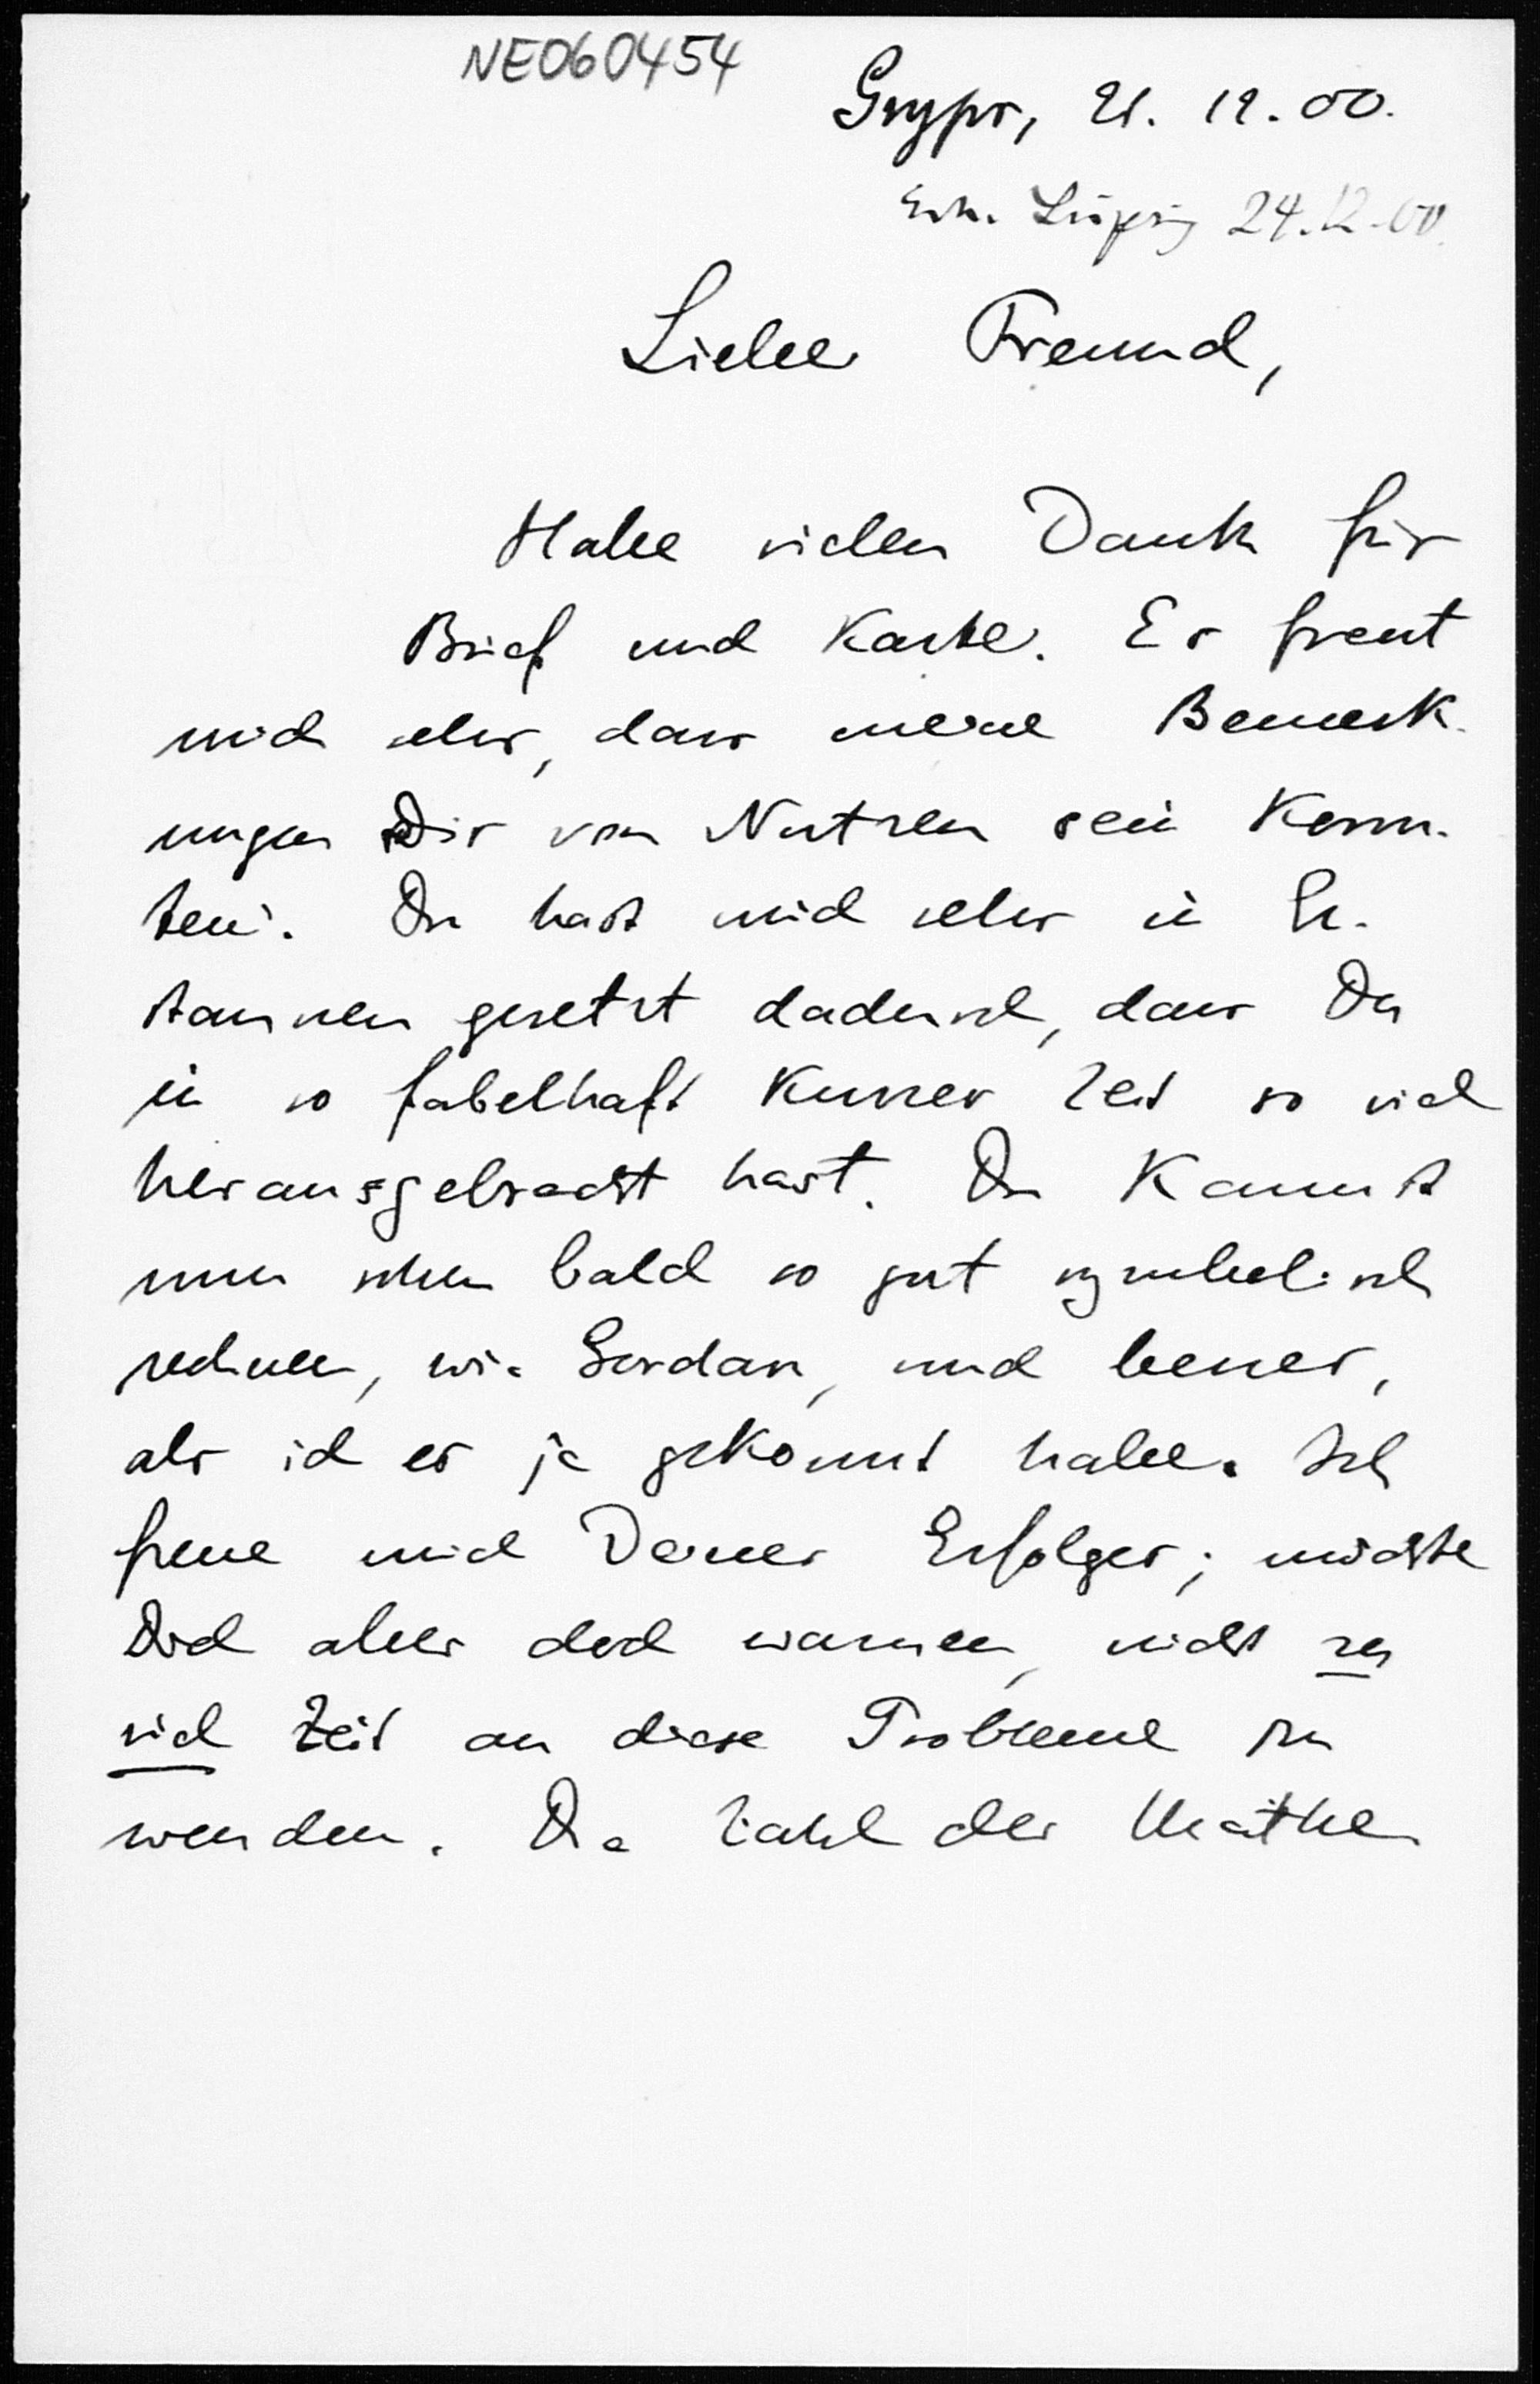 NE060454
Gryps, 21. 12. 00.
Erh. Leipzig 24.12.00.
Lieber Freund,
Habe vielen Dank für
Brief und Karte. Es freut
mich sehr, dass meine Bemerk-
ungen Dir von Nutzen sein konn-
ten. Du hast mich sehr in Er-
staunen gesetzt dadurch, dass Du
in so fabelhaft kurzer Zeit so viel
herausgebracht hast. Du kannst
nun schon bald so gut symbolisch
rechnen, wie Gordan, und besser,
als ich es je gekonnt habe. Ich
freue mich Deines Erfolges; möchte
Dich aber doch warnen, nicht zu
viel Zeit an diese Probleme zu
wenden. Die Zahl der Mathe